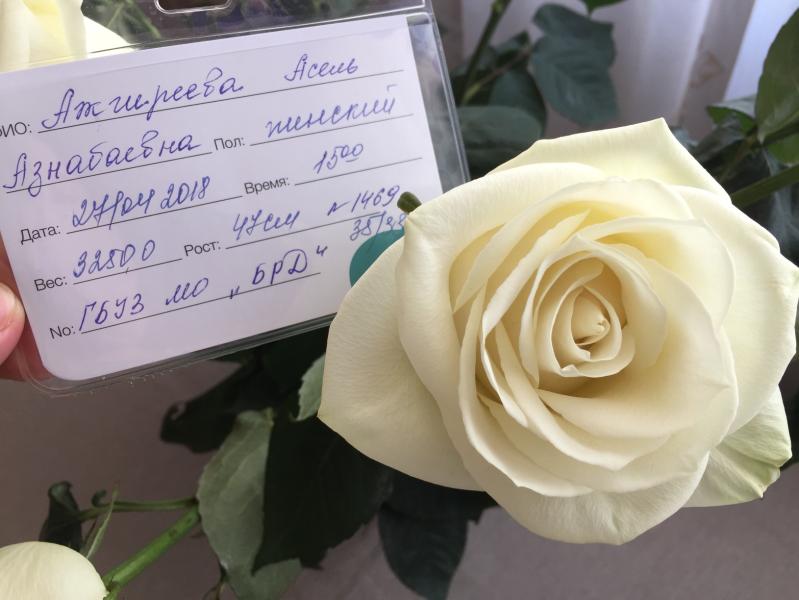 ФИО: Ажгиреева Асель
Азнабаевна Пол: женский
Дата: 27/04 2018 Время: 15⁰⁰
Вес: 3250,0 Рост: 47см №1469
35/
No: ГБУЗ МО „БРД“